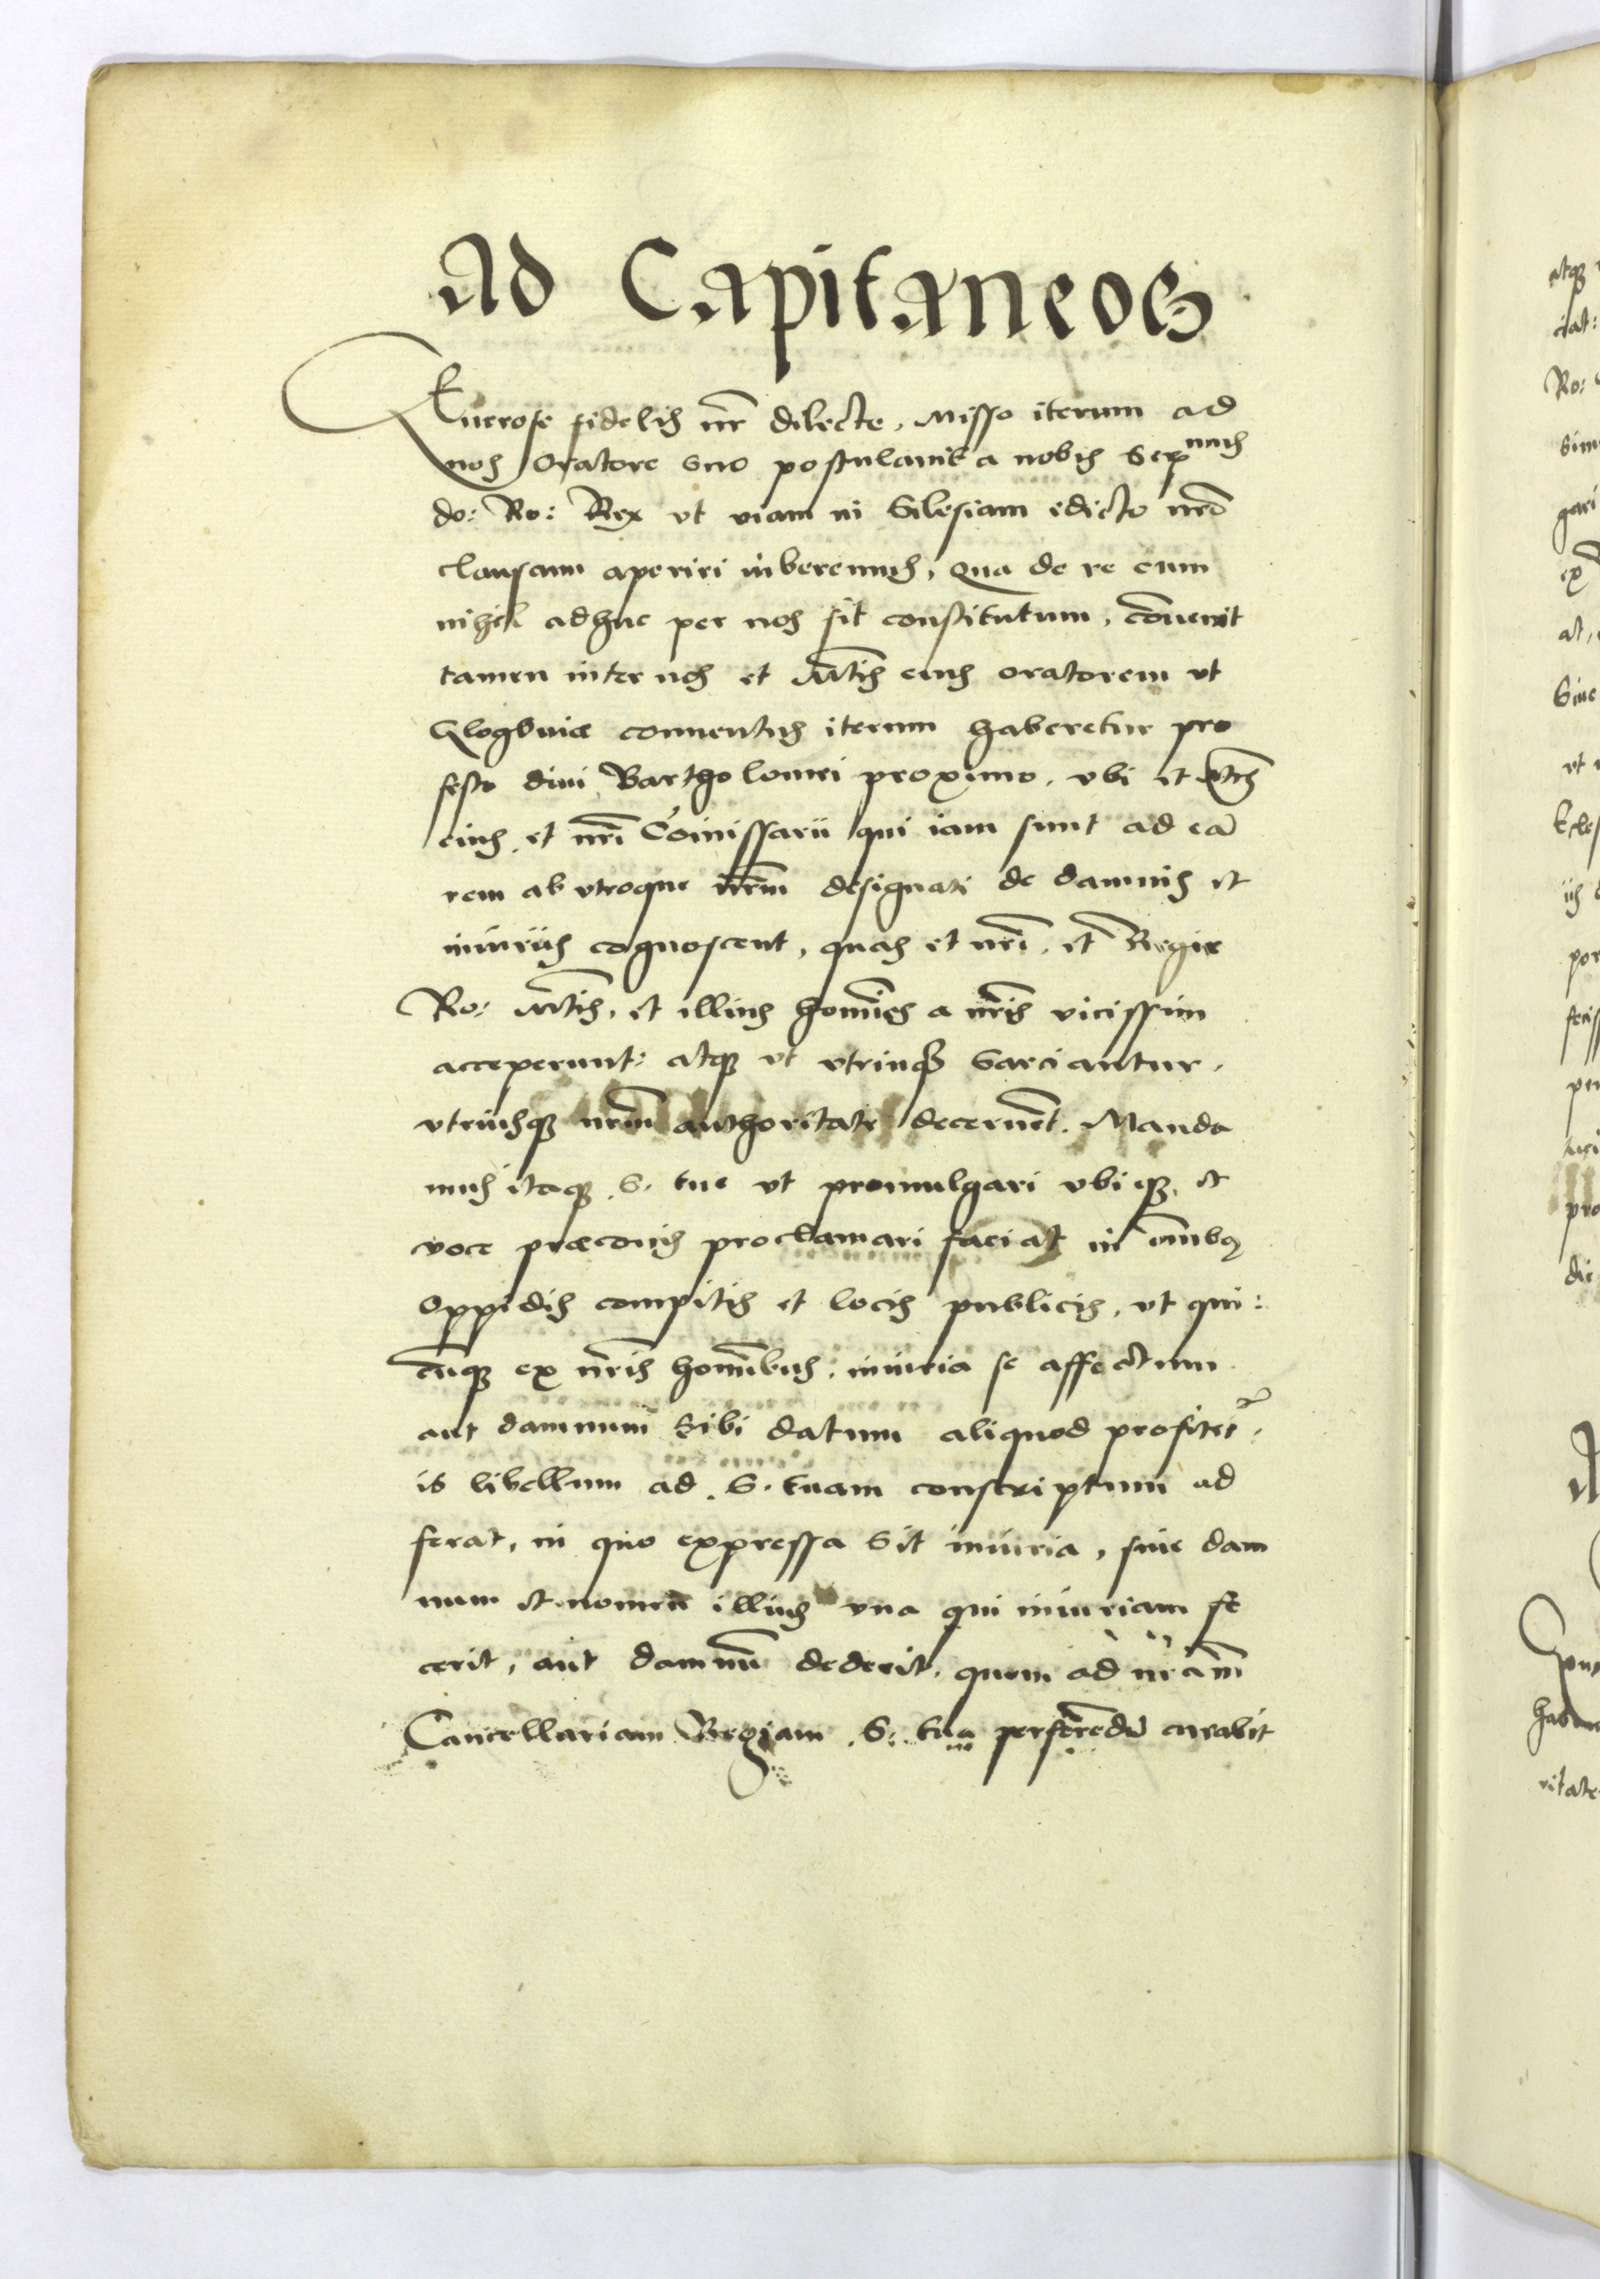 Ad Capitaneos
Generose fidelis nr̃ dilecte, Misso iterum ad
nos Oratore suo postulavit a nobis Sermus
do: Ro: Rex vt viam in Silesiam edicto nrõ
clausam aperiri iuberemus, Qua de re cum
nihil adhuc per nos sit constitutum, cõuenit
tamen inter nos et Mtis eius oratorem vt
Glogouiæ conuentus iterum haberetur pro
festo diui Bartholomei proximo, vbi et Mtis
eius, et nrĩ Cõmissarii qui iam sunt ad eã
rem ab vtroque nrẽm designati de damnis et
iniuriis cognoscent, quas et nrĩ, et Regie
Ro: Mtis, et illius homĩes a nrĩs vicissim
acceperunt: atq; vt vtrinq; sarciantur,
vtriusq; nrẽm authoritate decernẽt. Manda
mus itaq; S. tue vt promulgari vbiq; et
voce præconis proclamari faciat in om̃ibus
Oppidis compitis et locis publicis, vt qui:
cũq; ex nrĩs homĩbus, iniuria se affectum
aut damnum sibi datum aliquod profitet᷑,
is libellum ad S. tuam conscriptum ad
ferat, in quo expressa sit iniuria, siue dam
num et nomen illius vna qui iniuriam fe
cerit, aut damnũ dederit, quem ad nrãm
Cancellariam Regiam S. tua perferẽdũ curabit
atq;